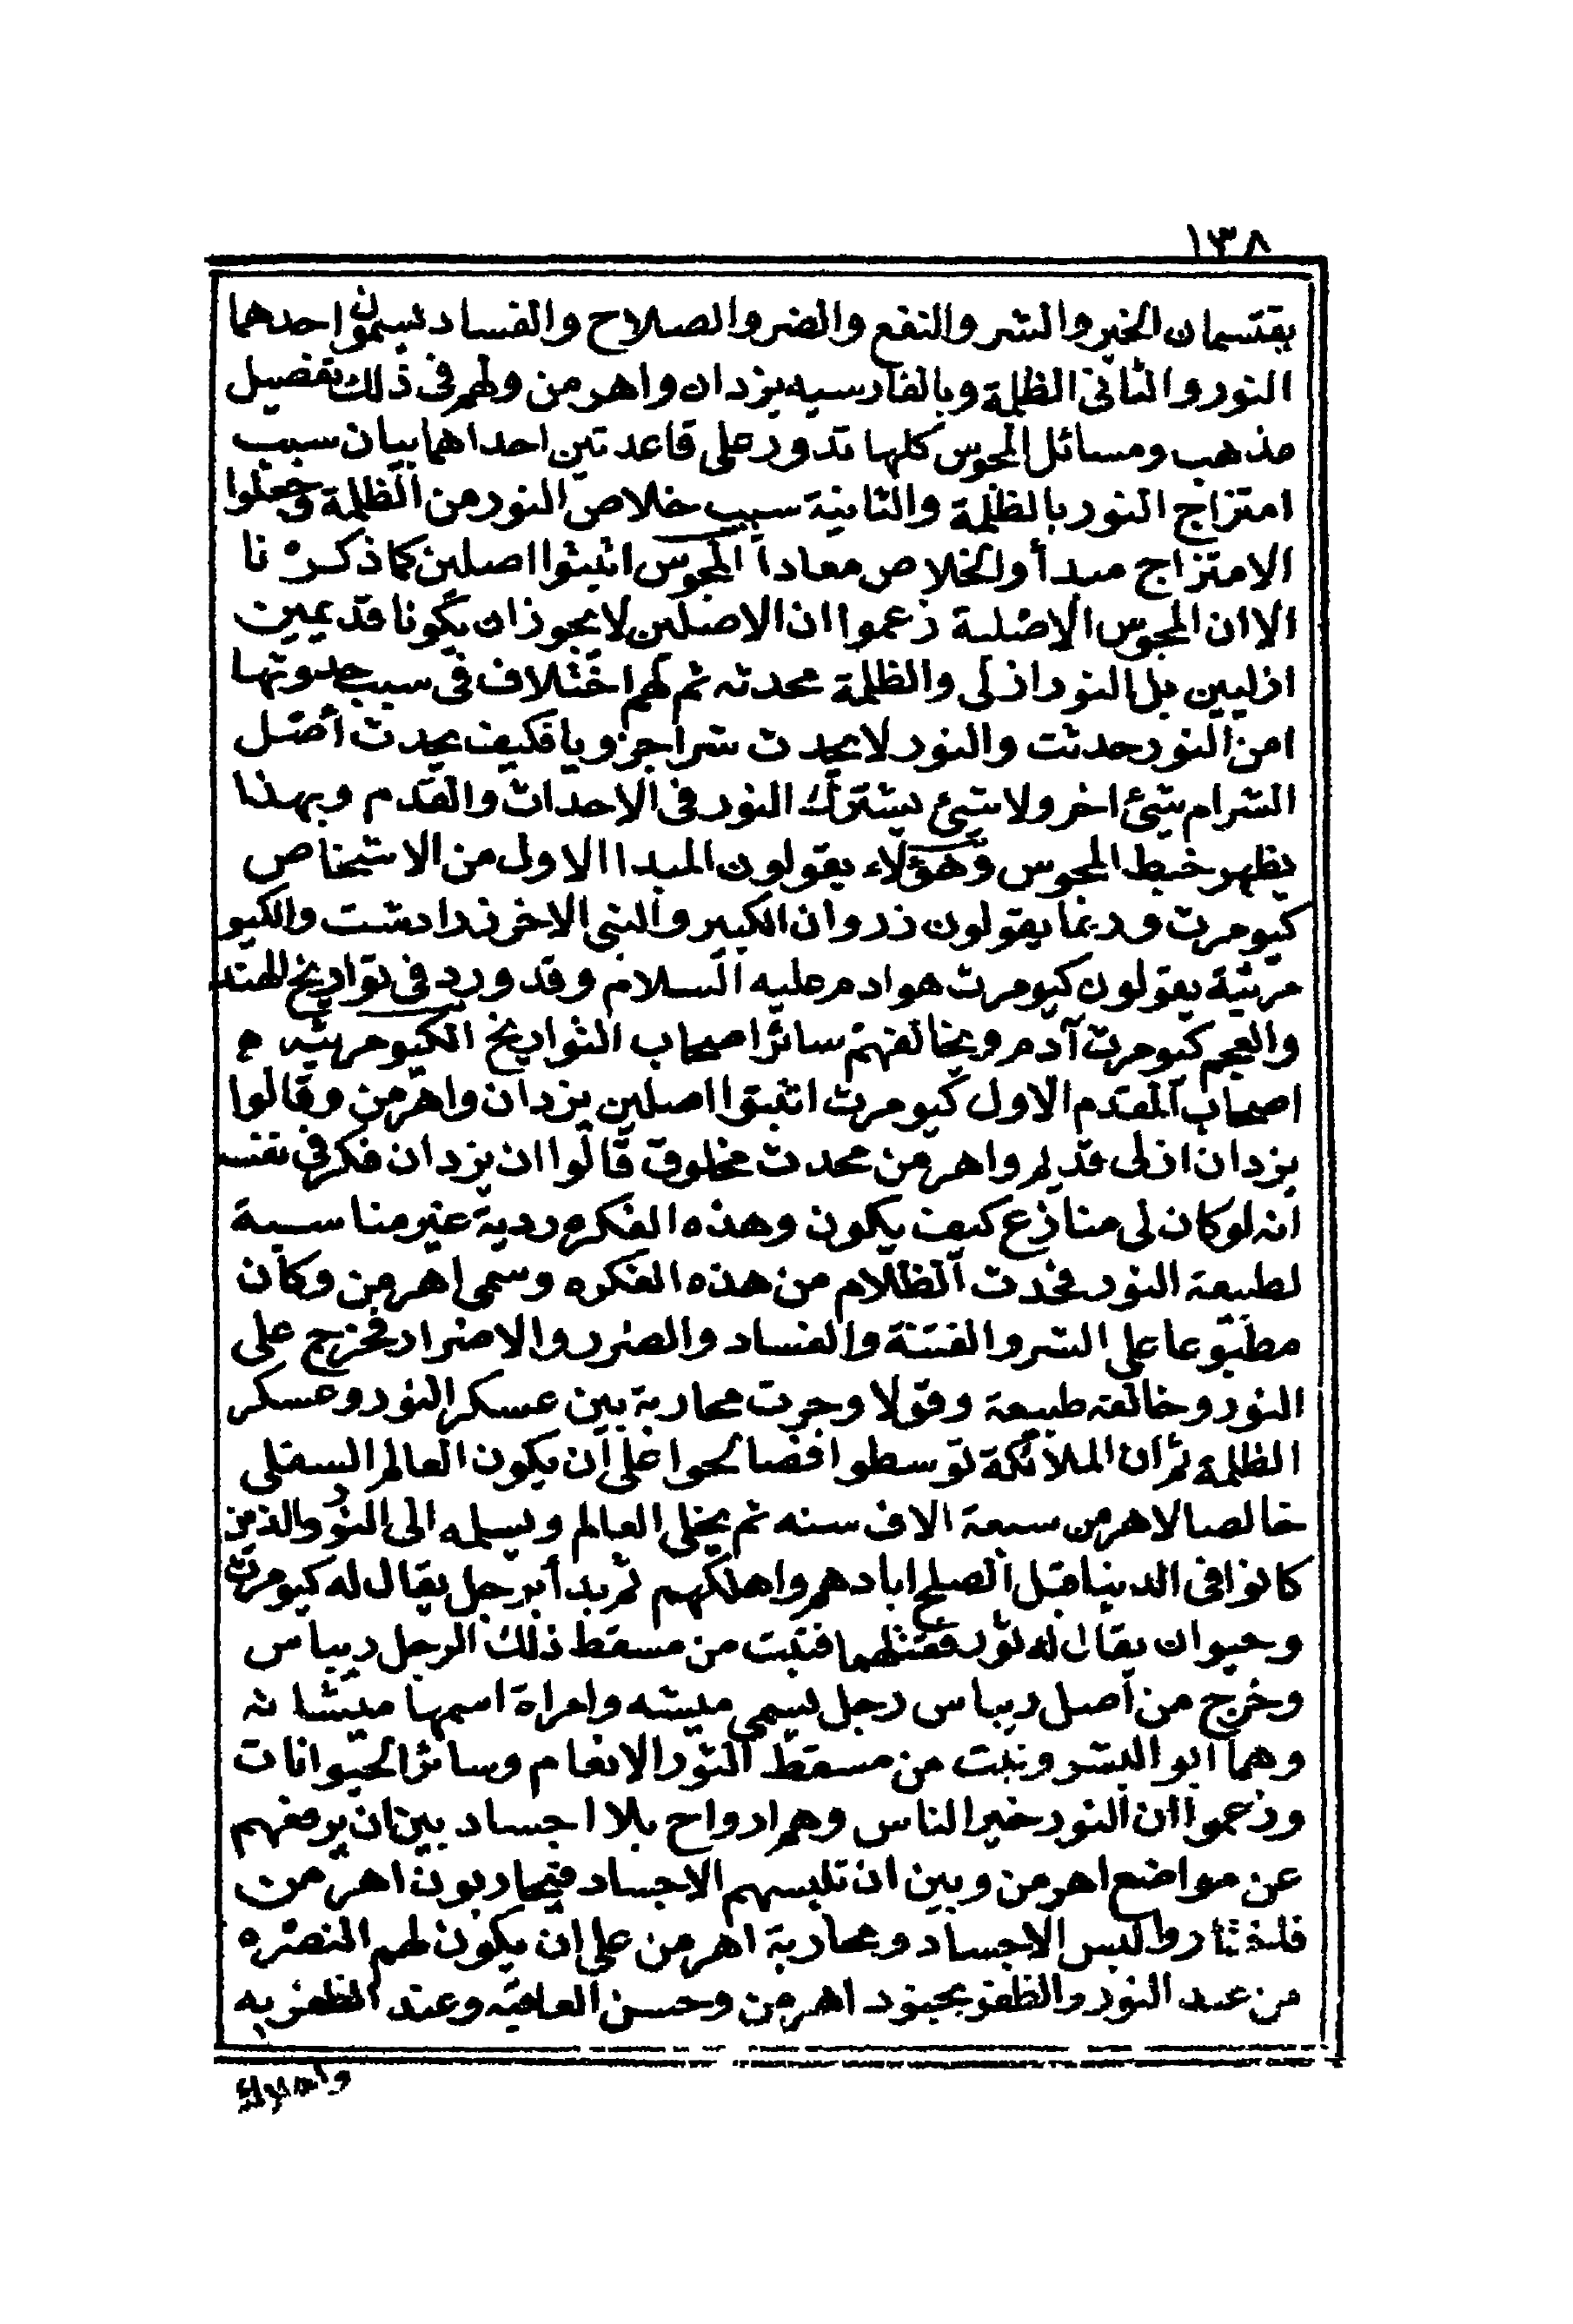 ١٣٨
يقتسمان الخير والشر والنفع والضر والصلاح والفساد يسمون احدهما
النور والثانى الظلمة وبالفارسيه يزدان واهرمن ولهم فى ذلك تفصيل
مذهب ومسائل المجوس كلها تدور على قاعدتين احداهما بيان سبب
امتزاج النور بالظلمة والثانية سبب خلاص النور من الظلمة وجعلوا
الامتزاج مبدأ والخلاص معاداً المجوس اثبتوا اصلين كما ذكرنا
الا ان المجوس الاصلية زعموا ان الاصلين لا يجوز ان يكونا قديمين
ازليين بل النور ازلى والظلمة محدثه ثم لهم اختلاف فى سبب حدوثها
امن النور حدثت والنور لا يحدث شرا جزويا فكيف يحدث أصل
الشر ام شئ اخر ولا شئ يشترك النور فى الاحداث والقدم وبهذا
يظهر خبط المجوس وهؤلاء يقولون المبدا الاول من الاشخاص
كيومرث وربما يقولون زروان الكبير والنبى الاخر زرادشت والكيو
مرثية يقولون كيومرث هو ادم عليه السلام وقد ورد فى تواريخ الهند
والعجم كيومرث آدم ويخالفهم سائر اصحاب التواريخ الكيومرثيه م
اصحاب المقدم الاول كيومرث اثبتوا اصلين يزدان واهرمن وقالوا
يزدان ازلى قديم واهرمن محدث مخلوق قالوا ان يزدان فكر فى نفسه
انه لو كان لى منازع كيف يكون وهذه الفكره ردية غير مناسبة
لطبيعة النور فحدث الظلام من هذه الفكره وسمى اهرمن وكان
مطبوعا على الشر والفتنة والفساد والضرر والاضرار فخرج على
النور وخالفه طبيعة وقولا وجرت محاربة بين عسكر النور وعسكر
الظلمة ثم ان الملائكة توسطوا فصالحوا على ان يكون العالم السفلى
خالصا لاهرمن سبعة الاف سنه ثم يخلى العالم ويسلمه الى النور والذين
كانوا فى الدينا قبل الصلح ابادهم واهلكهم ثم بدأ برجل يقال له كيومرث
وحيوان يقال له ثور فقتلهما فنبت من مسقط ذلك الرجل ريباس
وخرج من أصل ريباس رجل يسمى ميشه وامراة اسمها ميشانه
وهما ابو البشر ونبت من مسقط الثور الانعام وسائر الحيوانات
وزعموا ان النور خير الناس وهم ارواح بلا اجساد بين ان يرفعهم
عن مواضع اهرمن وبين ان تلبسهم الاجساد فيحاربون اهرمن
فاختاروا لبس الاجساد ومحاربة اهرمن على ان يكون لهم النصره
من عند النور والظفر بجنود اهرمن وحسن العاقبه وعند الظفر به